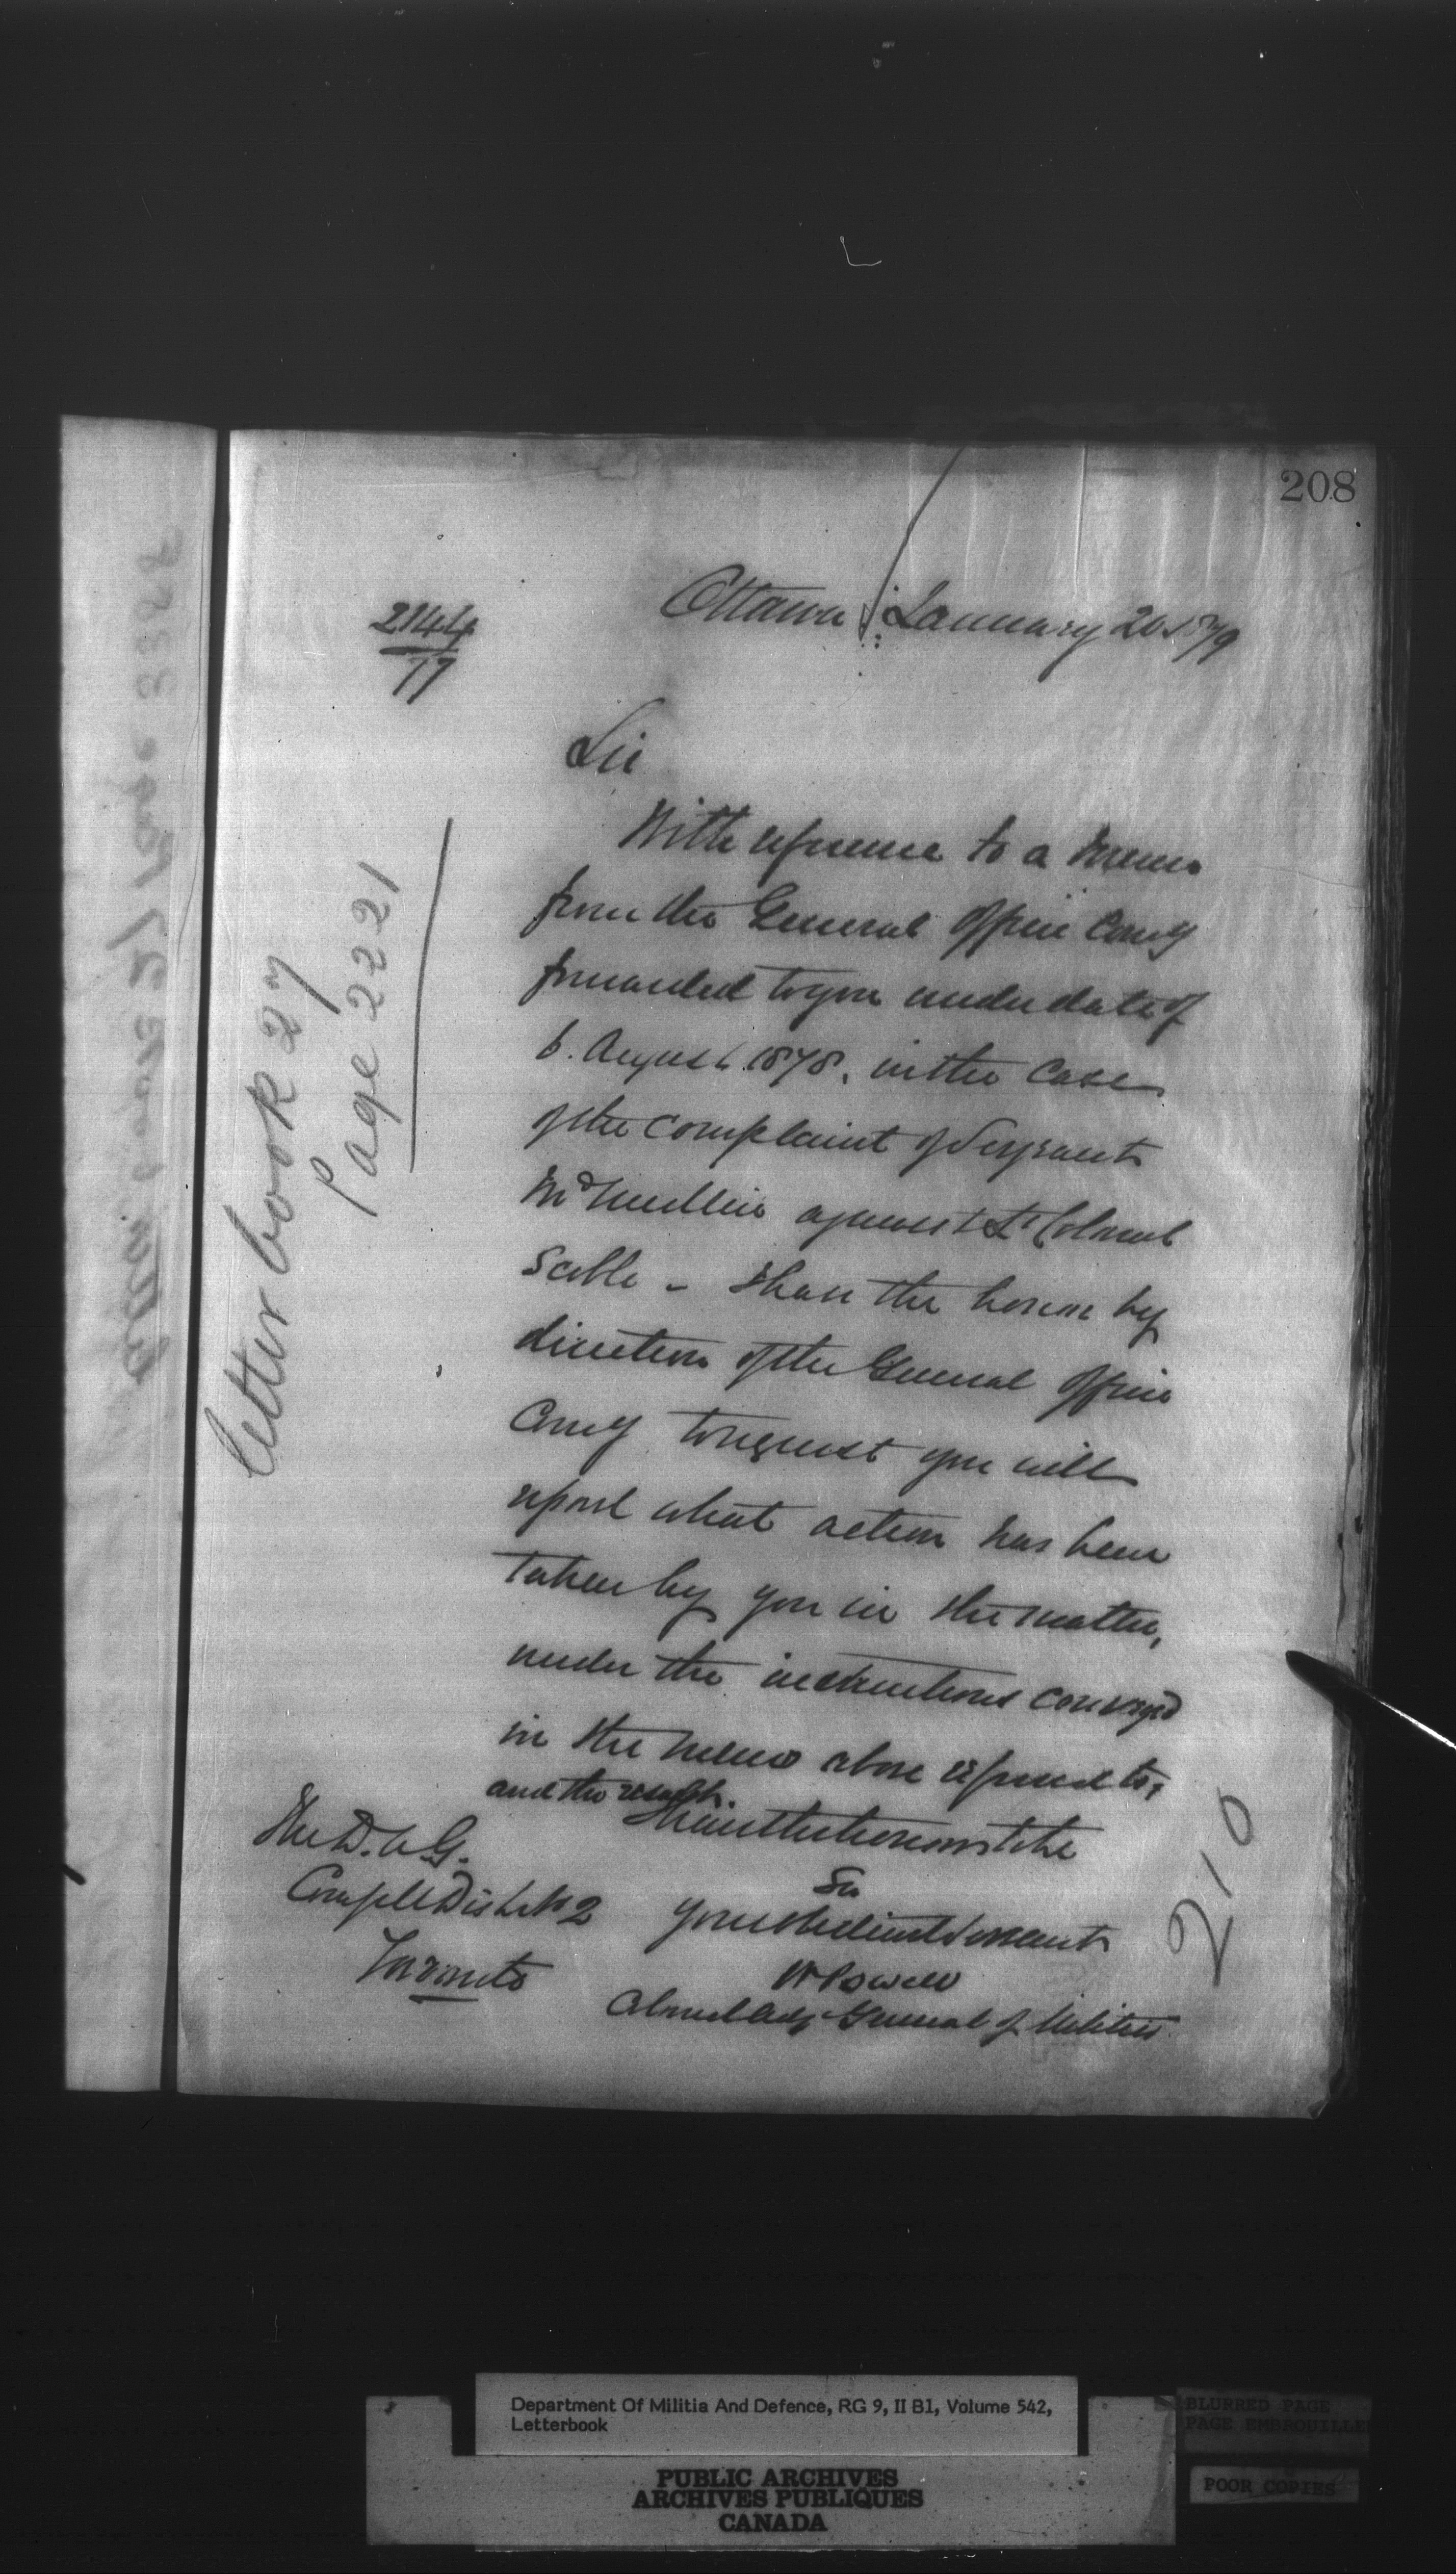 208
Ottawa January 20. 1879
2144
77
Sir
With reference to a memo
from the General Officer Comg
forwarded to you under date of
6. August 1878. in the case
of the complaint of Sergeant
McMullin against Lt Colonel
Scoble - I have the honor by
direction of the General Officer
Comg to request you will
report what action has been
taken by you in the matter,
under the instructions conveyed
in the memo above referred to,
and the result.
I have the honor to be
Sir
Your obedient Servant
W Powell
Colonel Adjt General of Militia
The D.A.G.
Comg Mil Dist No 2
Toronto
Letter book 27
Page 2221
210
Department Of Militia And Defence, RG 9, II B1, Volume 542,
Letterbook
PUBLIC ARCHIVES
ARCHIVES PUBLIQUES
CANADA
BLURRED PAGE
PAGE EMBROUILLE
POOR COPIES